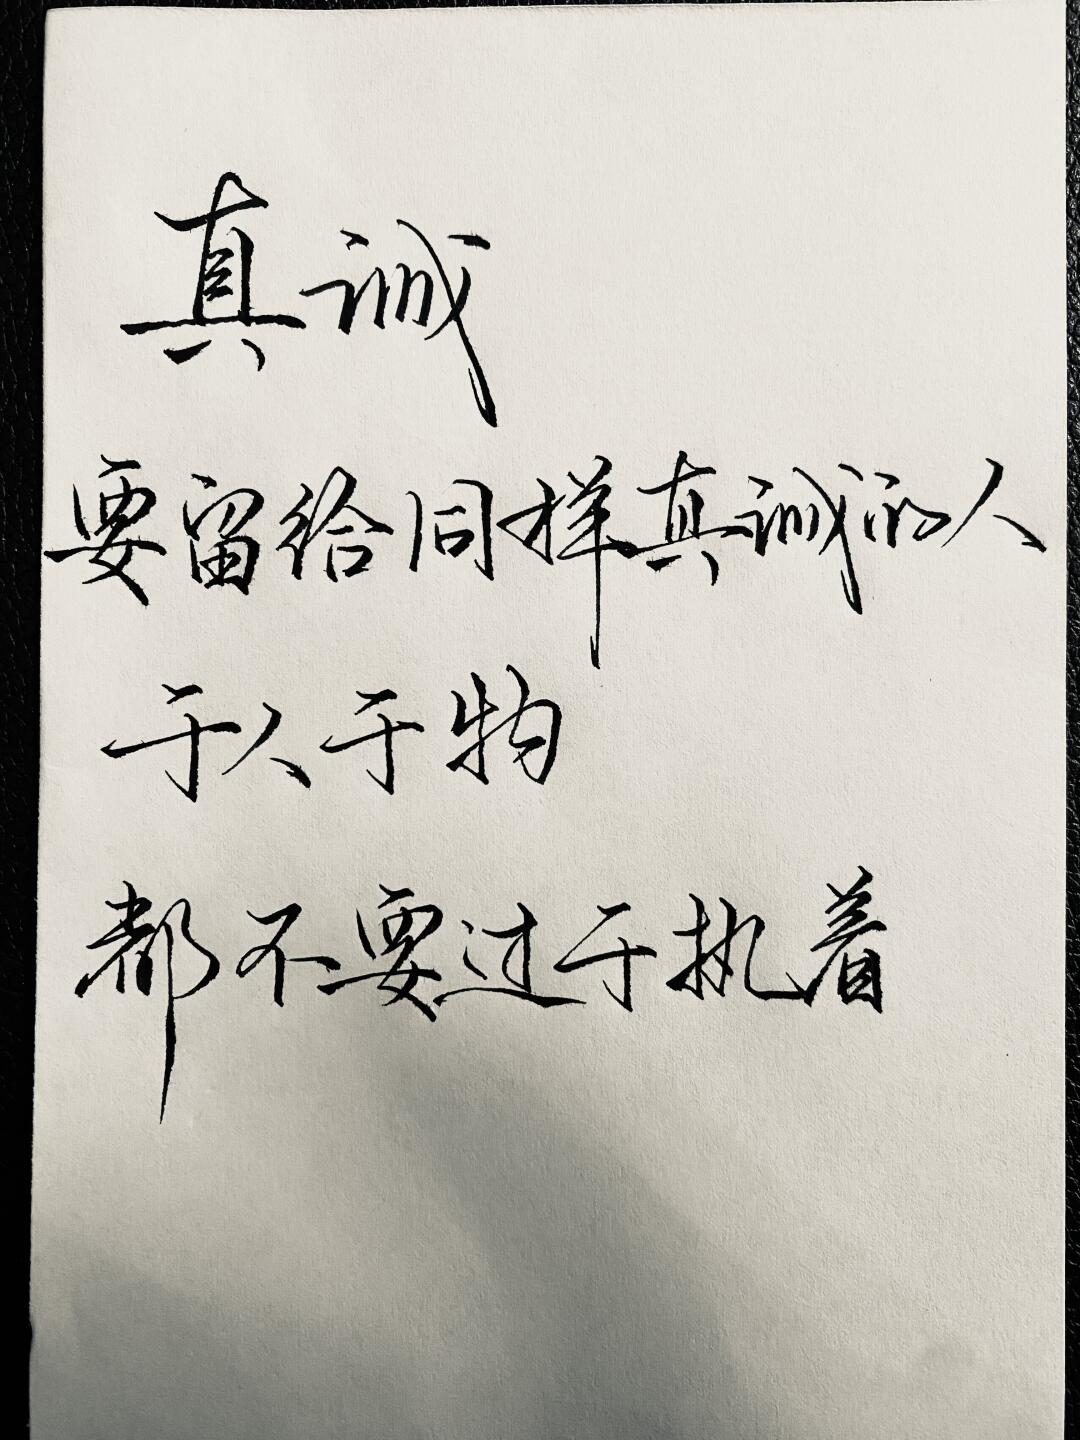 真诚
要留给同样真诚的人
于人于物
都不要过于执着